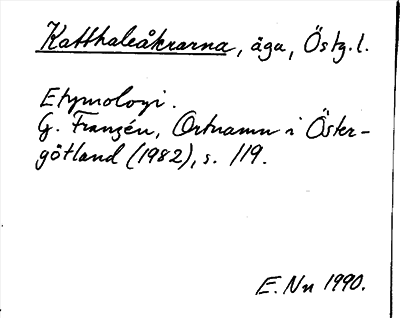 Katthaleåkrarna, äga, Östg.l.
Etymologi.
G. Franzén, Ortnamn i Öster-
götland (1982), s. 119.
E. Nn 1990.